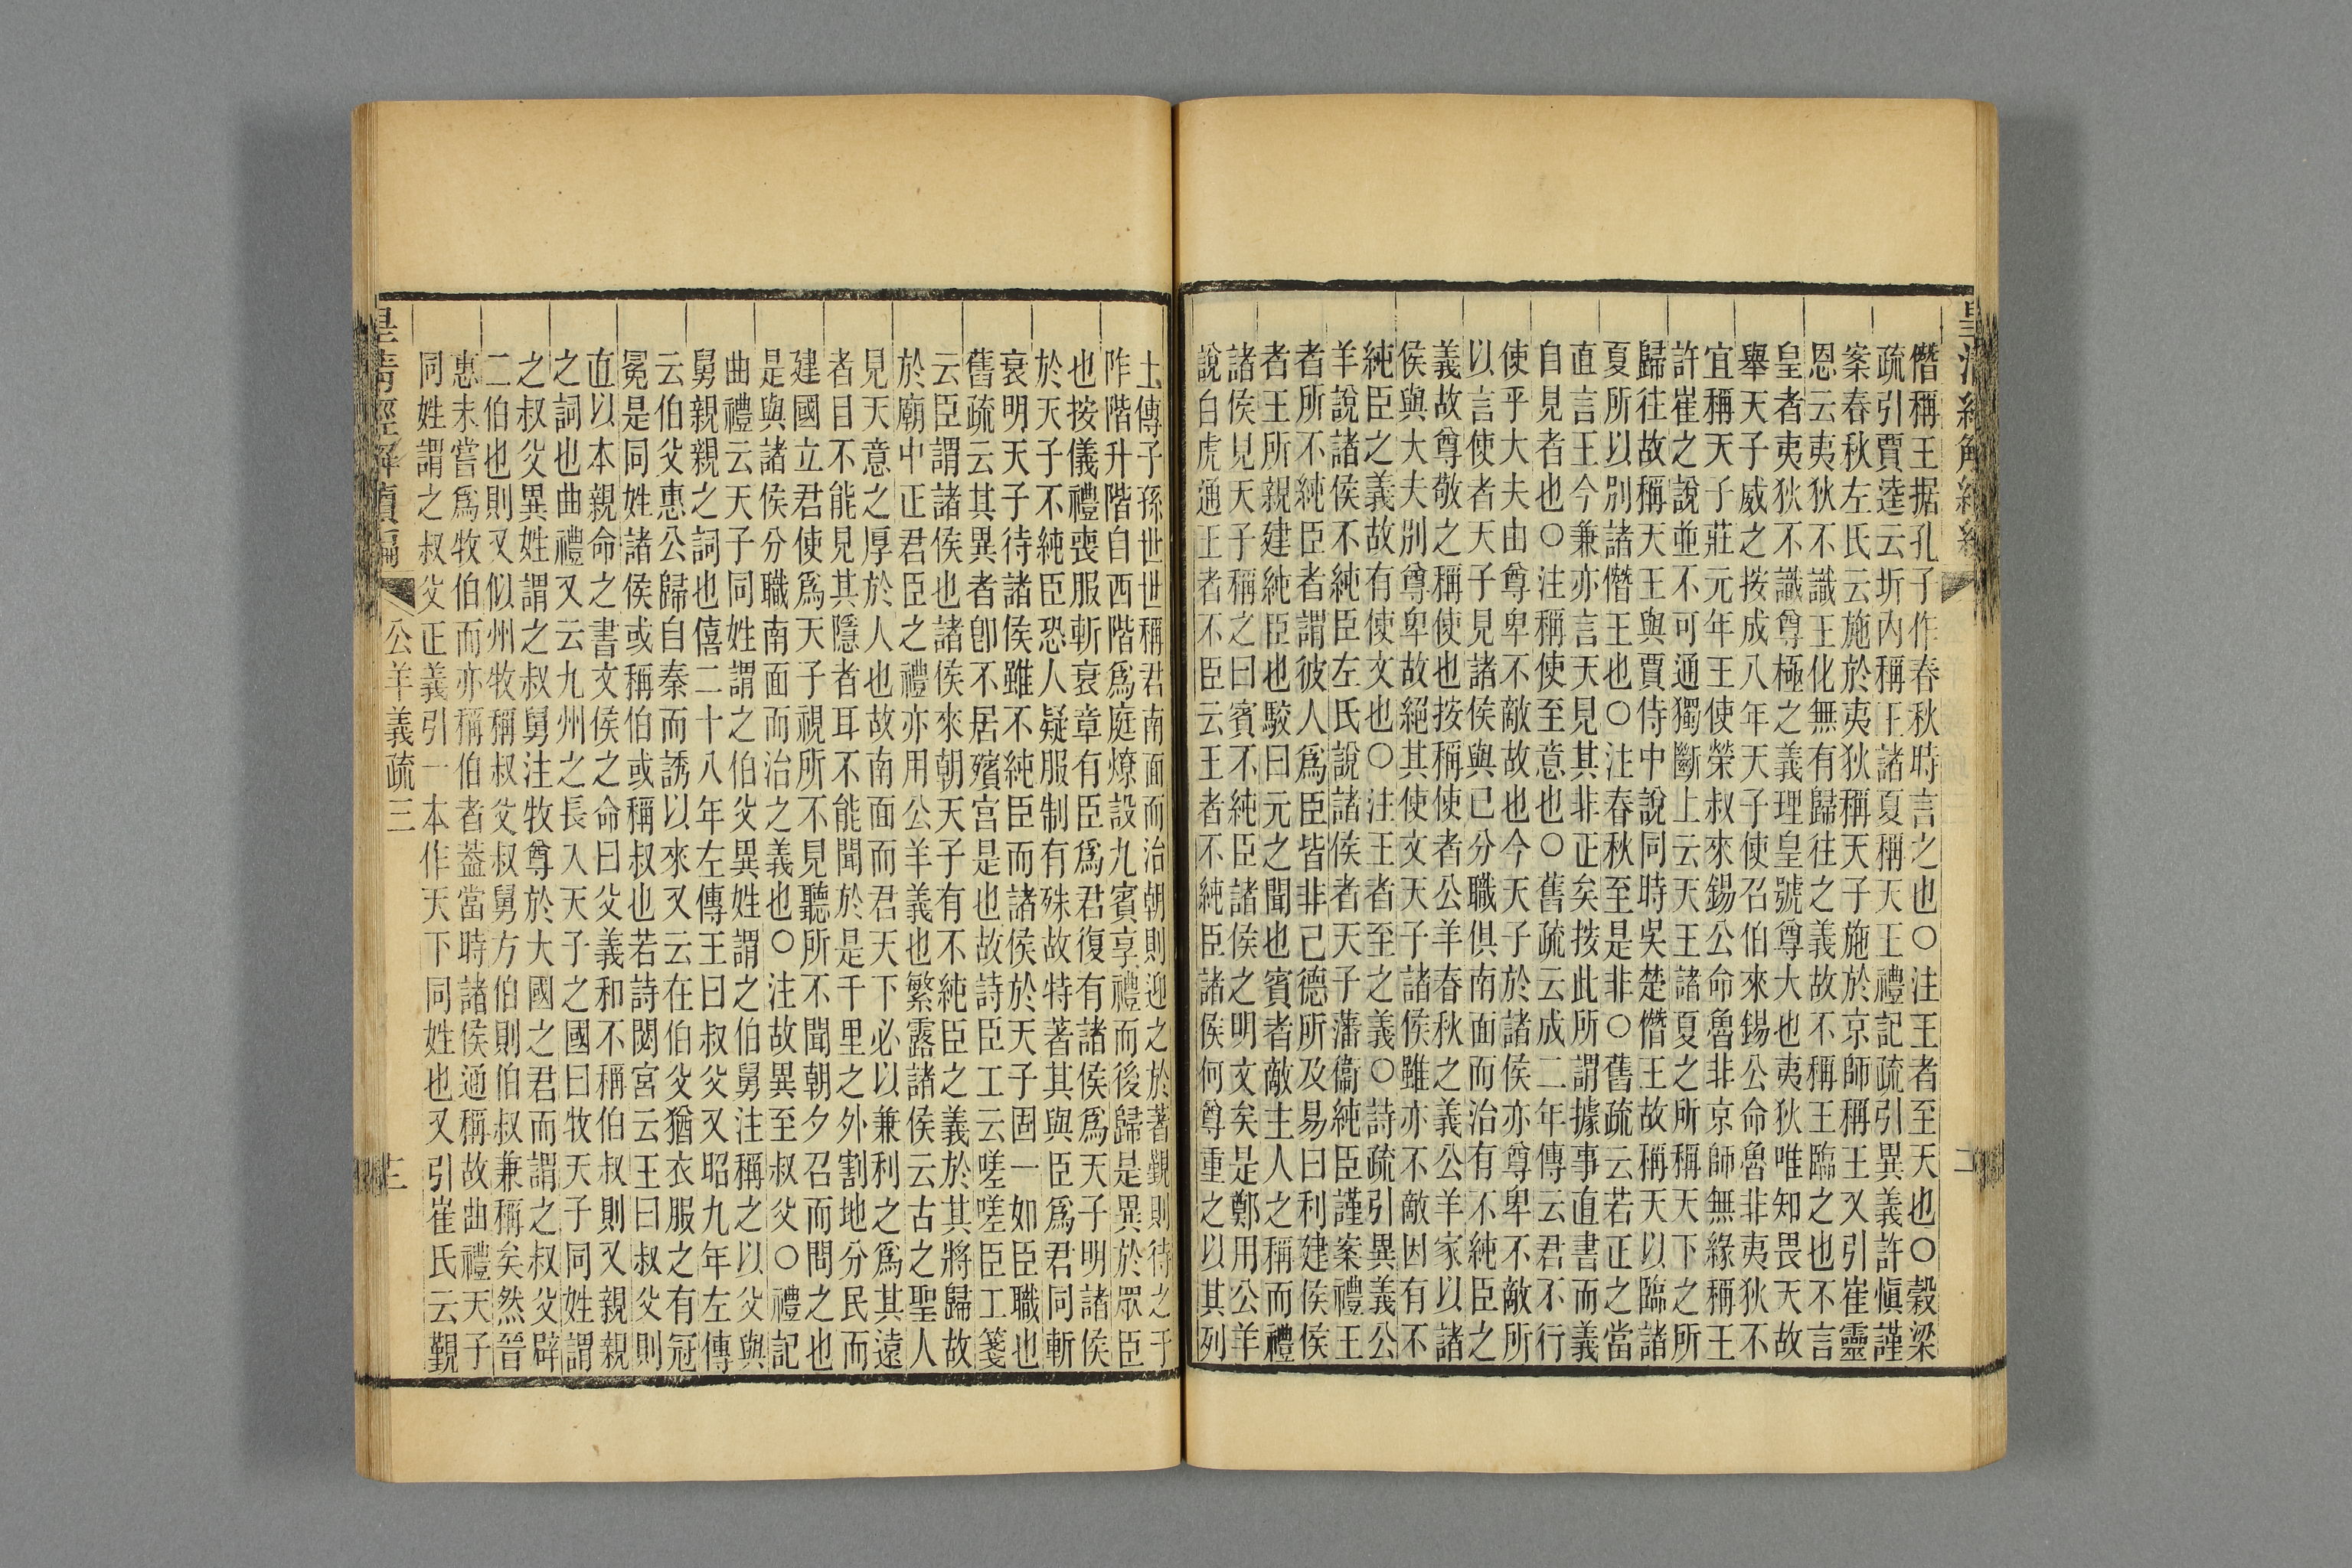 皇清經解續編
二
僭稱王据孔子作春秋時言之也○注王者至天也○穀梁
疏引賈逵云圻內稱王諸夏稱天王禮記疏引異義許慎謹
案春秋左氏云施於夷狄稱天子施於京師稱王又引崔靈
恩云夷狄不識王化無有歸往之義故不稱王臨之也不言
皇者夷狄不識尊極之義理皇號尊大也夷狄唯知畏天故
舉天子威之按成八年天子使召伯來錫公命魯非夷狄不
宜稱天子莊元年王使榮叔來錫公命魯非京師無緣稱王
許崔之說並不可通獨斷上云天王諸夏之所稱天下之所
歸往故稱天王與賈侍中說同時吳楚僭王故稱天以臨諸
夏所以別諸僭王也○注春秋至是非○舊疏云若正之當
直言王今兼亦言天見其非正矣按此所謂據事直書而義
自見者也○注稱使至意也○舊疏云成二年傳云君不行
使乎大夫由尊卑不敵故也今天子於諸侯亦尊卑不敵所
以言使者天子見諸侯與已分職俱南面而治有不純臣之
義故尊敬之稱使也按稱使者公羊春秋之義公羊家以諸
侯與大夫別尊卑故絕其使文天子諸侯雖亦不敵因有不
純臣之義故有使文也○注王者至之義○詩疏引異義公
羊說諸侯不純臣左氏說諸侯者天子藩衞純臣謹案禮王
者所不純臣者謂彼人爲臣皆非己德所及易曰利建侯侯
者王所親建純臣也駮曰元之聞也賓者敵主人之稱而禮
諸侯見天子稱之曰賓不純臣諸侯之明文矣是鄭用公羊
說白虎通王者不臣云王者不純臣諸侯何尊重之以其列
土傳子孫世世稱君南面而治朝則迎之於著覲則待之于
阼階升階自西階爲庭燎設九賓享禮而後歸是異於眾臣
也按儀禮喪服斬衰章有臣爲君復有諸侯爲天子明諸侯
於天子不純臣恐人疑服制有殊故特著其與臣爲君同斬
衰明天子待諸侯雖不純臣而諸侯於天子固一如臣職也
舊疏云其異者卽不居殯宮是也故詩臣工云嗟嗟臣工箋
云臣謂諸侯也諸侯來朝天子有不純臣之義於其將歸故
於廟中正君臣之禮亦用公羊義也繁露諸侯云古之聖人
見天意之厚於人也故南面而君天下必以兼利之爲其遠
者目不能見其隱者耳不能聞於是千里之外割地分民而
建國立君使爲天子視所不見聽所不聞朝夕召而問之也
是與諸侯分職南面而治之義也○注故異至叔父○禮記
曲禮云天子同姓謂之伯父異姓謂之伯舅注稱之以父與
舅親親之詞也僖二十八年左傳王曰叔父又昭九年左傳
云伯父惠公歸自秦而誘以來又云在伯父猶衣服之有冠
冕是同姓諸侯或稱伯或稱叔也若詩閟宮云王曰叔父則
直以本親命之書文侯之命曰父義和不稱伯叔則又親親
之詞也曲禮又云九州之長入天子之國曰牧天子同姓謂
之叔父異姓謂之叔舅注牧尊於大國之君而謂之叔父辟
二伯也則又似州牧稱叔父叔舅方伯則伯叔兼稱矣然晉
惠未嘗爲牧伯而亦稱伯者葢當時諸侯通稱故曲禮天子
同姓謂之叔父正義引一本作天下同姓也又引崔氏云覲
皇清經解續編 公羊義疏三